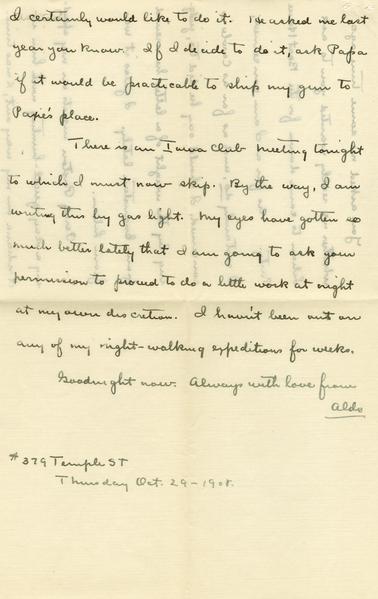 I certainly would like to do it. He asked me last
year you know. If I decide to do it, ask Papa
if it would be practicable to ship my gun to
Pape's place.
There is an Iowa Club meeting tonight
to which I must now skip. By the way, I am
writing this by gas light. My eyes have gotten so
much better lately that I am going to ask your
permission to proceed to do a little work at night
at my own discretion. I haven't been out on
any of my night-walking expeditions for weeks.
Goodnight now. Always with love from
Aldo
#379 Temple St
Thursday Oct. 29-1908.